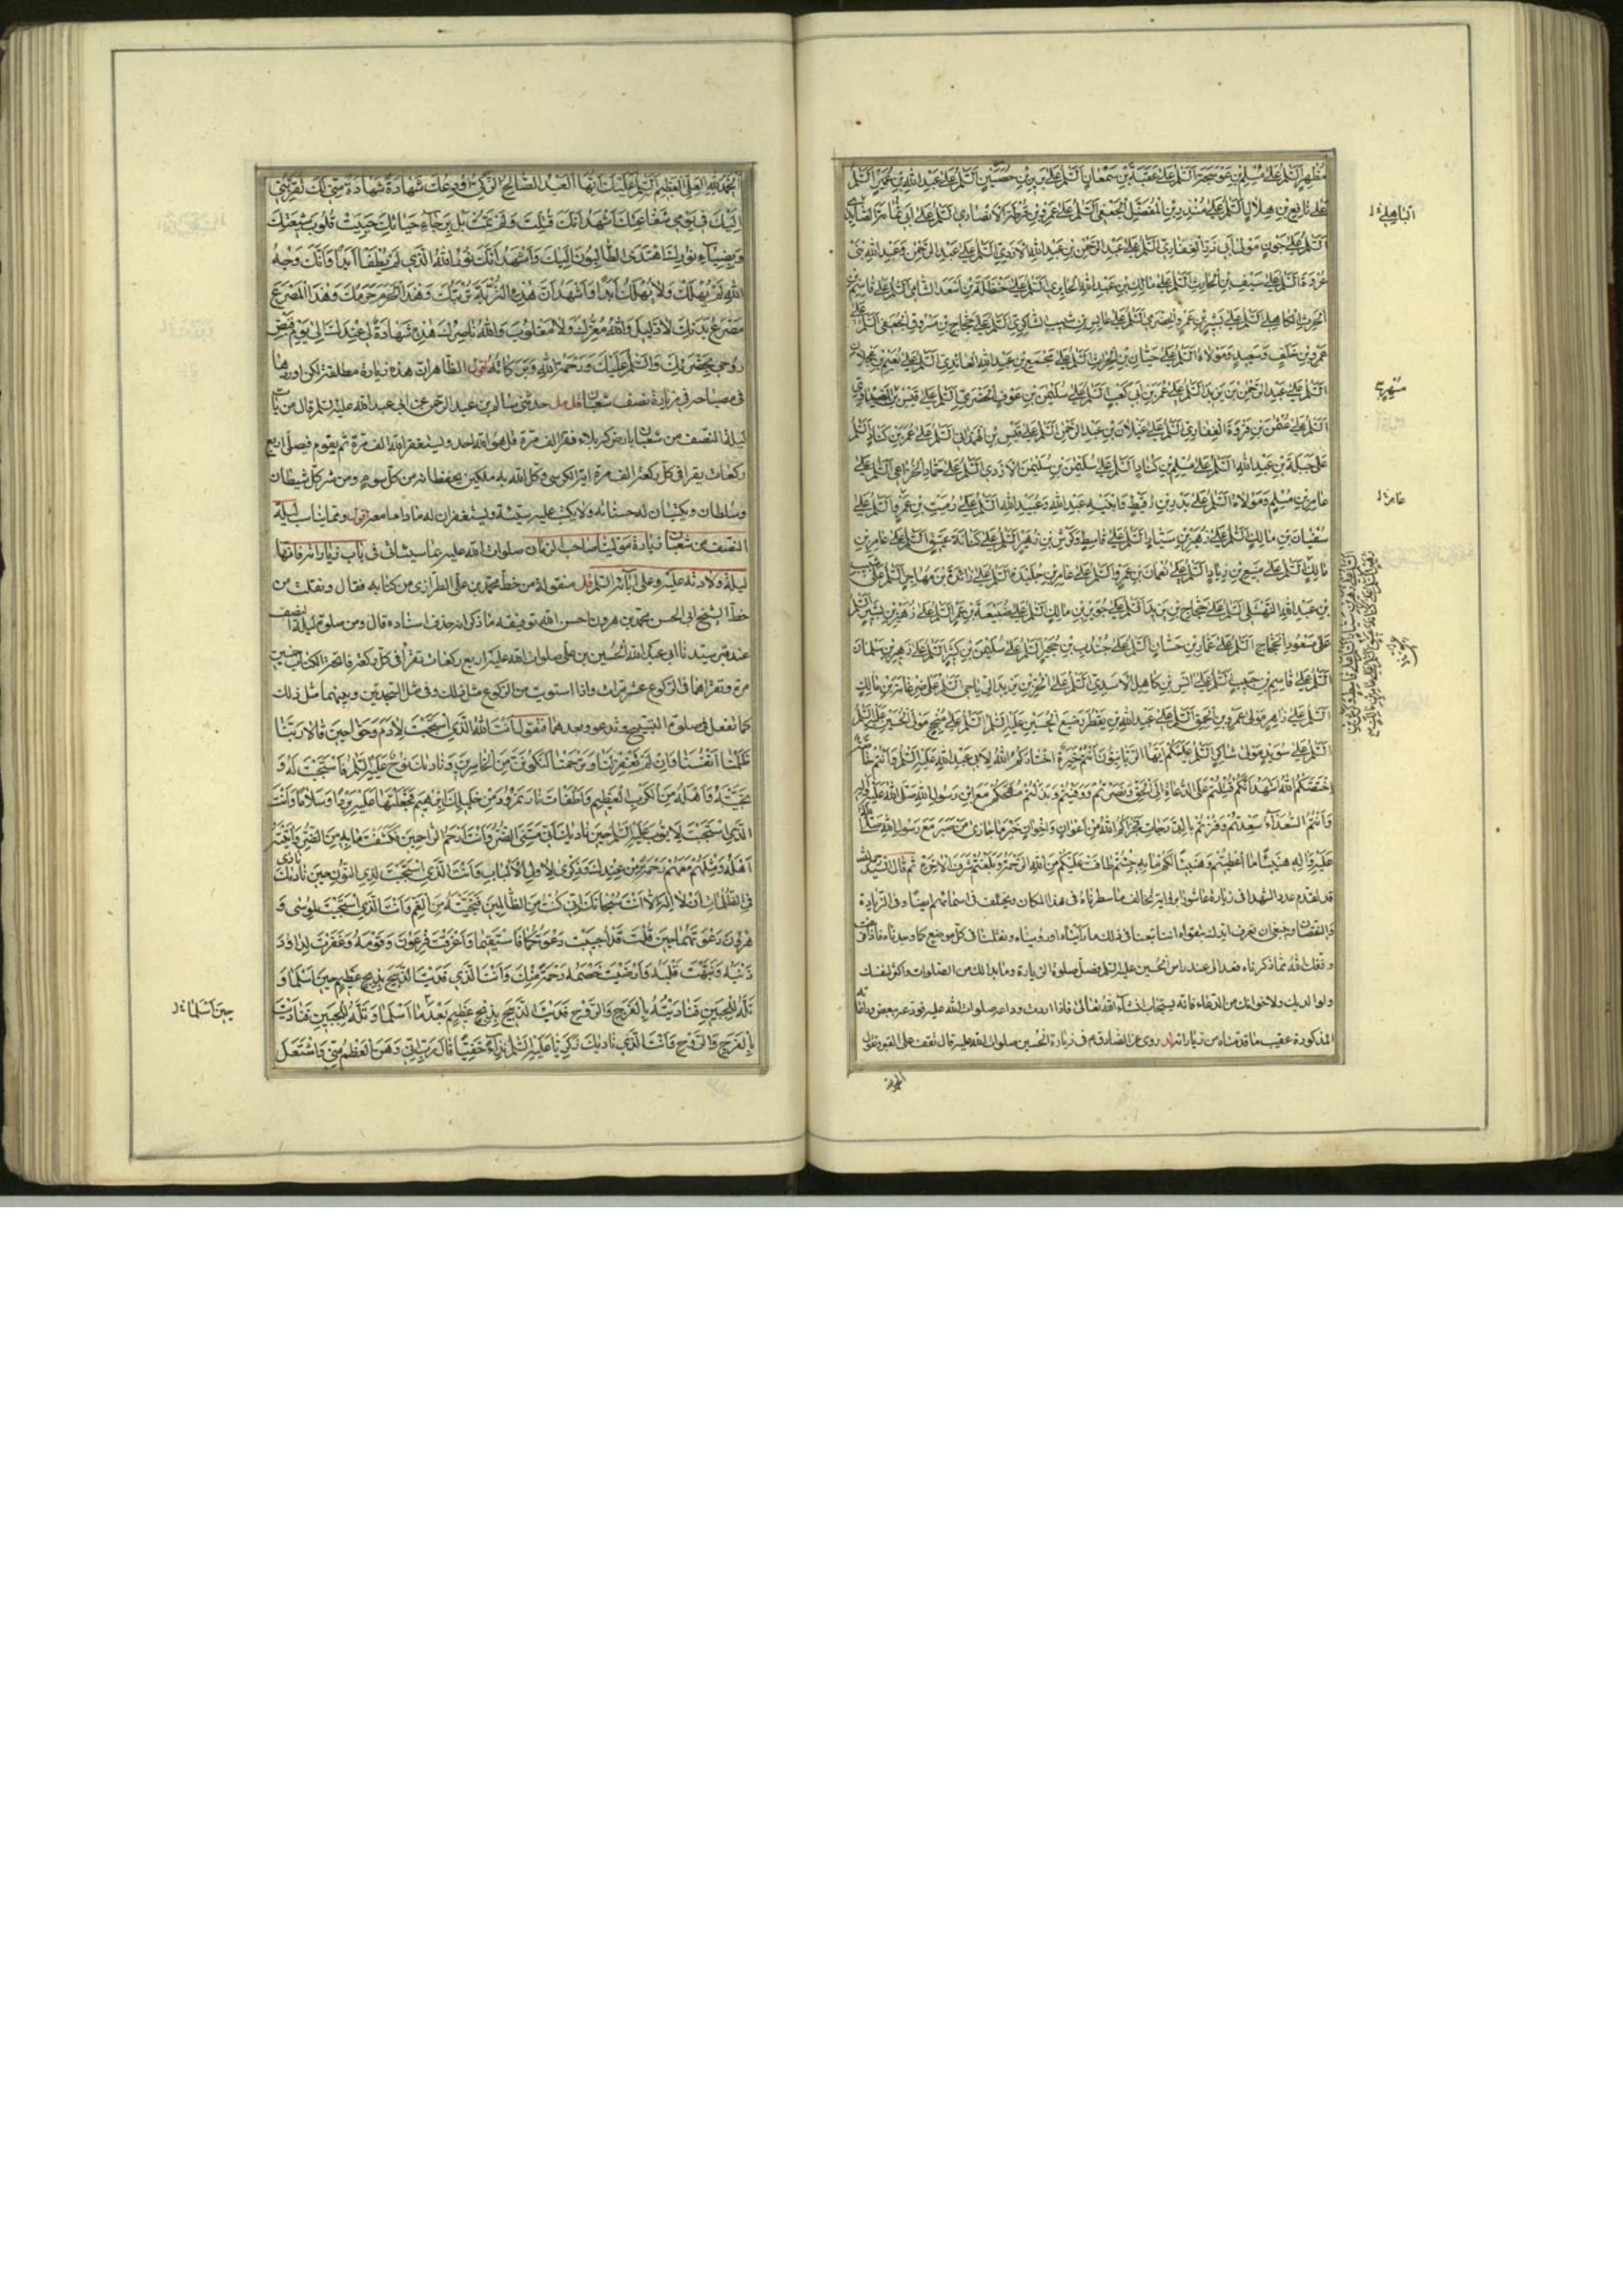 مُظَهِّرٍ السَّلمُ عَلى مُسْلِمِ بْنِ عَوْسَجَةَ السَّلمُ عَلى عُقْبَةَ بْنِ سَمْعَانَ السَّلمُ عَلى بُرَيْرِ بْنِ حُصَيْنٍ السَّلمُ عَلى عَبْدِ اللهِ بْنِ عُمَيْرٍ السَّلمُ
عَلى نافِعِ بْنِ هِلالٍ السَّلمُ عَلى مُنْذِرِ بْنِ الْمُفَضَّلِ الْجُعْفِيِّ السَّلمُ عَلى عَمْرِو بْنِ قَرَظَةَ الأَنْصارِيِّ السَّلمُ عَلى أَبي ثُمامَةَ الصّائِدِيِّ
السَّلمُ عَلى جَوْنٍ مَوْلى أَبي ذَرٍّ الْغِفارِيِّ السَّلمُ عَلى عَبْدِ الرَّحْمنِ بْنِ عَبْدِ اللهِ الأَزْدِيِّ السَّلمُ عَلى عَبْدِ الرَّحْمنِ وَعَبْدِ اللهِ بْنَيْ
عُرْوَةَ السَّلمُ عَلى سَيْفِ بْنِ الْحارِثِ السَّلمُ عَلى مالِكِ بْنِ عَبْدِ اللهِ الْحايِرِيِّ السَّلمُ عَلى حَنْظَلَةَ بْنِ أَسْعَدَ الشِّبامِيِّ السَّلمُ عَلى قاسِمِ بْنِ
الْحَرْثِ الْكاهِلِيِّ السَّلمُ عَلى بَشِيرِ بْنِ عَمْرٍو الْحَضْرَمِيِّ السَّلمُ عَلى عابِسِ بْنِ شَبيبٍ الشّاكِرِيِّ السَّلمُ عَلى حَجّاجِ بْنِ مَسْرُوقٍ الْجُعْفِيِّ السَّلمُ عَلى
عَمْرِو بْنِ خَلَفٍ وَسَعيدٍ وَمَوْلاهُ السَّلمُ عَلى حَيّانَ بْنِ الْحارِثِ السَّلمُ عَلى مُجَمِّعِ بْنِ عَبْدِ اللهِ الْعائِذِيِّ السَّلمُ عَلى نُعَيْمِ بْنِ عَجْلانَ
السَّلمُ عَلى عَبْدِ الرَّحْمنِ بْنِ يَزيدَ السَّلمُ عَلى عُمَرَ بْنِ أَبي كَعْبٍ السَّلمُ عَلى سُلَيْمنَ بْنِ عَوْفٍ الْحَضْرَمِيِّ السَّلمُ عَلى قَيْسِ بْنِ مُسْهِرٍ الصَّيْداوِيِّ
السَّلمُ عَلى عُثْمنَ بْنِ فَرْوَةَ الْغِفارِيِّ السَّلمُ عَلى غَيْلانَ بْنِ عَبْدِ الرَّحْمنِ السَّلمُ عَلى قَيْسِ بْنِ الْهَمْدانِيِّ السَّلمُ عَلى عُمَرَ بْنِ كَنّادٍ السَّلمُ
عَلى جَبَلَةَ بْنِ عَبْدِ اللهِ السَّلمُ عَلى مُسْلِمِ بْنِ كَنّادٍ السَّلمُ عَلى سُلَيْمنَ بْنِ سُلَيْمنَ الأَزْدِيِّ السَّلمُ عَلى حَمّادٍ الْخُزاعِيِّ السَّلمُ عَلى
عامِرِ بْنِ مُسْلِمٍ وَمَوْلاهُ السَّلمُ عَلى بَدْرِ بْنِ رُقَيْطٍ وَابْنَيْهِ عَبْدِ اللهِ وَعُبَيْدِ اللهِ السَّلمُ عَلى رُمَيْثِ بْنِ عَمْرٍو السَّلمُ عَلى
سُفْيانَ بْنِ مالِكٍ السَّلمُ عَلى زُهَيْرِ بْنِ سَيّارٍ السَّلمُ عَلى قاسِطٍ وَكَرْشِ بْنِ زُهَيْرٍ السَّلمُ عَلى كِنانَةَ بْنِ عَتيقٍ السَّلمُ عَلى عامِرِ بْنِ
مالِكٍ السَّلمُ عَلى مَنيعِ بْنِ زِيادٍ السَّلمُ عَلى نُعْمانَ بْنِ عَمْرٍو السَّلمُ عَلى عامِرِ بْنِ جُلَيْدَةَ السَّلمُ عَلى زائِدَةَ بْنِ مُهاجِرٍ السَّلمُ عَلى شَبيبِ
بْنِ عَبْدِ اللهِ النَّهْشَلِيِّ السَّلمُ عَلى حَجّاجِ بْنِ يَزيدَ السَّلمُ عَلى جُوَيْرِ بْنِ مالِكٍ السَّلمُ عَلى ضُبَيْعَةَ بْنِ عَمْرٍو السَّلمُ عَلى زُهَيْرِ بْنِ بَشيرٍ السَّلمُ
عَلى مَسْعُودِ بْنِ الْحَجّاجِ السَّلمُ عَلى عَمّارِ بْنِ حَسّانَ السَّلمُ عَلى جُنْدَبِ بْنِ حُجَيْرٍ السَّلمُ عَلى سُلَيْمنَ بْنِ كَثيرٍ السَّلمُ عَلى زُهَيْرِ بْنِ سَلْمانَ
السَّلمُ عَلى قاسِمِ بْنِ حَبيبٍ السَّلمُ عَلى أَنَسِ بْنِ كاهِلٍ الأَسَدِيِّ السَّلمُ عَلى الْحُرِّ بْنِ يَزيدَ الرِّياحِيِّ السَّلمُ عَلى ضِرْغامَةَ بْنِ مالِكٍ
السَّلمُ عَلى زاهِرٍ مَوْلى عَمْرِو بْنِ الْحَمِقِ السَّلمُ عَلى عَبْدِ اللهِ بْنِ يَقْطُرَ رَضيعِ الْحُسَيْنِ عَلَيْهِ السَّلمُ السَّلمُ عَلى مُنْجِحٍ مَوْلى الْحُسَيْنِ عَلَيْهِ السَّلمُ
السَّلمُ عَلى سُوَيْدٍ مَوْلى شاكِرٍ السَّلمُ عَلَيْكُمْ أَيُّهَا الرَّبّانِيُّونَ أَنْتُمْ خِيَرَةٌ اخْتارَكُمُ اللهُ لأَبي عَبْدِ اللهِ عَلَيْهِ السَّلمُ وَأَنْتُمْ خاصَّةٌ
اخْتَصَّكُمُ اللهُ أَشْهَدُ أَنَّكُمْ قُتِلْتُمْ عَلَى الدُّعاءِ إِلَى الْحَقِّ وَنَصَرْتُمْ وَوَفَيْتُمْ وَبَذَلْتُمْ مُهَجَكُمْ مَعَ ابْنِ رَسُولِ اللهِ صَلَّى اللهُ عَلَيْهِ وَآلِهِ
وَأَنْتُمُ السُّعَداءُ سَعِدْتُمْ وَفُزْتُمْ بِالدَّرَجاتِ فَجَزاكُمُ اللهُ مِنْ أَعْوانٍ وَإِخْوانٍ خَيْرَ ما جازى مَنْ صَبَرَ مَعَ رَسُولِ اللهِ صَلَّى اللهُ
عَلَيْهِ وَآلِهِ هَنيئًا ما أُعْطيتُمْ وَهَنيئًا لَكُمْ ما بِهِ حُيِّيتُمْ طافَتْ عَلَيْكُمْ مِنَ اللهِ الرَّحْمَةُ وَبَلَغْتُمْ شَرَفَ الآخِرَةِ ثم قال السيد رحمه الله
قد تقدم عدد الشهداء في زيارة عاشورا برواية تخالف ما سطرناه في هذا المكان ويختلف في اسمائهم ايضا وفي الزيادة
والنقصان وينبغي ان تعرف ايدك الله بتقواه اننا تبعنا في ذلك ما رأيناه او رويناه ونقلنا في كل موضع كما وجدناه فاذا
وفقك الله مما ذكرناه فعد الى عند راس الحسين عليه السلم فصل صلوة الزيارة وما بدا لك من الصلوات واكثر لنفسك
ولوالديك ولاخوانك من الدعاء فانه يستجاب انشاء الله تعالى فاذا اردت وداعه صلوات الله عليه فودعه ببعض وداعاته
المذكورة عقيب ما قدمناه من زياراته روى عن الصادق في زيارة الحسين صلوات الله عليه قال تقف على القبر وتقول
الباهلي خ ل
مسهر
عامر خ ل
الحمد لله
الْحَمْدُ لِلّهِ الْعَلِيِّ الْعَظيمِ السَّلمُ عَلَيْكَ أَيُّهَا الْعَبْدُ الصّالِحُ الزَّكِيُّ أُودِعُكَ شَهادَةً مِنّي لَكَ تُقَرِّبُني
إِلَيْكَ في يَوْمِ شَفاعَتِكَ أَشْهَدُ أَنَّكَ قُتِلْتَ وَلَمْ تَمُتْ بَلْ بِرَجاءِ حَياتِكَ حَيِيَتْ قُلُوبُ شيعَتِكَ
وَبِضِياءِ نُورِكَ اهْتَدَى الطّالِبُونَ إِلَيْكَ وَأَشْهَدُ أَنَّكَ نُورُ اللهِ الَّذي لَمْ يُطْفَأْ أَبَدًا وَأَنَّكَ وَجْهُ
اللهِ لَمْ يَهْلِكْ وَلا يَهْلِكُ أَبَدًا وَأَشْهَدُ أَنَّ هذِهِ التُّرْبَةَ تُرْبَتُكَ وَهذَا الْحَرَمَ حَرَمُكَ وَهذَا الْمَصْرَعَ
مَصْرَعُ بَدَنِكَ لا ذَليلَ وَاللهُ مُعِزُّكَ وَلا مَغْلُوبَ وَاللهُ ناصِرُكَ هذِهِ شَهادَةٌ لي عِنْدَكَ إِلى يَوْمِ قَبْضِ
رُوحي بِحَضْرَتِكَ وَالسَّلمُ عَلَيْكَ وَرَحْمَةُ اللهِ وَبَرَكاتُهُ اقول الظاهر ان هذه زيارة مطلقة لكن اوردها
في مصباحه في زيارة نصف شعبان قل مل حدثني سالم بن عبد الرحمن عن ابي عبد الله عليه السلم قال من بات
ليلة النصف من شعبان بارض كربلاء فقرا الف مرة قل هو الله احد ويستغفر الله الف مرة ثم يقوم فيصلي اربع
ركعات يقرا في كل ركعة الف مرة اية الكرسي وكل الله به ملكين يحفظانه من كل سوء ومن شر كل شيطان
وسلطان ويكتبان له حسناته ولا يكتب عليه سيئة ويستغفران له ما داما معه اقول ومما يناسب ليلة
النصف من شعبان زيارة مولينا صاحب الزمان صلوات الله عليه عما سيتأتى في باب زياراته فانها
ليلة ولادته عليه وعلى آبائه السلم قل منقولة من خط محمد بن علي الطرازي من كتابه فقال ونقلت من
خط الشيخ ابي الحسن محمد بن هرون احسن الله توفيقه ما ذكر انه حذف اسناده قال ومن صلوة ليلة النصف
عند قبر سيدنا ابي عبد الله الحسين بن علي صلوات الله عليه اربع ركعات تقرأ في كل ركعة فاتحة الكتاب خمسين
مرة وتقراهما في الركوع عشر مرات واذا استويت من الركوع مثل ذلك وفي السجدتين وبينهما مثل ذلك
كما تفعل في صلوة التسبيح وتدعو بعدهما وتقول أَنْتَ اللهُ الَّذي اسْتَجَبْتَ لآدَمَ وَحَوّا حينَ قالا رَبَّنا
ظَلَمْنا أَنْفُسَنا وَإِنْ لَمْ تَغْفِرْ لَنا وَتَرْحَمْنا لَنَكُونَنَّ مِنَ الْخاسِرينَ وَناداكَ نُوحٌ عَلَيْهِ السَّلمُ فَاسْتَجَبْتَ لَهُ وَ
نَجَّيْتَهُ وَأَهْلَهُ مِنَ الْكَرْبِ الْعَظيمِ وَأَطْفَأْتَ نارَ نَمْرُودَ عَنْ خَليلِكَ إِبْرهيمَ فَجَعَلْتَها عَلَيْهِ بَرْدًا وَسَلامًا وَأَنْتَ
الَّذي اسْتَجَبْتَ لأَيُّوبَ عَلَيْهِ السَّلمُ حينَ ناداكَ أَنّي مَسَّنِيَ الضُّرُّ وَأَنْتَ أَرْحَمُ الرّاحِمينَ فَكَشَفْتَ ما بِهِ مِنَ الضُّرِّ وَآتَيْتَهُ
أَهْلَهُ وَمِثْلَهُمْ مَعَهُمْ رَحْمَةً مِنْ عِنْدِكَ وَذِكْرى لأُولِي الأَلْبابِ وَأَنْتَ الَّذي اسْتَجَبْتَ لِذِي النُّونِ حينَ ناداكَ
فِي الظُّلُماتِ أَنْ لا إِلهَ إِلاّ أَنْتَ سُبْحانَكَ إِنّي كُنْتُ مِنَ الظّالِمينَ فَنَجَّيْتَهُ مِنَ الْغَمِّ وَأَنْتَ الَّذي اسْتَجَبْتَ لِمُوسى وَ
هرُونَ دَعْوَتَهُما حينَ قُلْتَ قَدْ أُجيبَتْ دَعْوَتُكُما فَاسْتَقيما وَأَغْرَقْتَ فِرْعَوْنَ وَقَوْمَهُ وَغَفَرْتَ لِداوُدَ
ذَنْبَهُ وَنَبَّهْتَ قَلْبَهُ وَأَرْضَيْتَ خَصْمَهُ رَحْمَةً مِنْكَ وَأَنْتَ الَّذي فَدَيْتَ الذَّبيحَ بِذِبْحٍ عَظيمٍ حينَ أَسْلَما وَ
تَلَّهُ لِلْجَبينِ فَنادَيْتَهُ بِالْفَرَجِ وَالرَّوْحِ فَدَيْتَ الذَّبيحَ بِذِبْحٍ عَظيمٍ بَعْدَ ما أَسْلَما وَتَلَّهُ لِلْجَبينِ فَنادَيْتَ
بِالْفَرَجِ وَالرَّوْحِ وَأَنْتَ الَّذي ناداكَ زَكَرِيّا عَلَيْهِ السَّلمُ نِداءً خَفِيًّا قالَ رَبِّ إِنّي وَهَنَ الْعَظْمُ مِنّي وَاشْتَعَلَ
حين أسلما خ ل